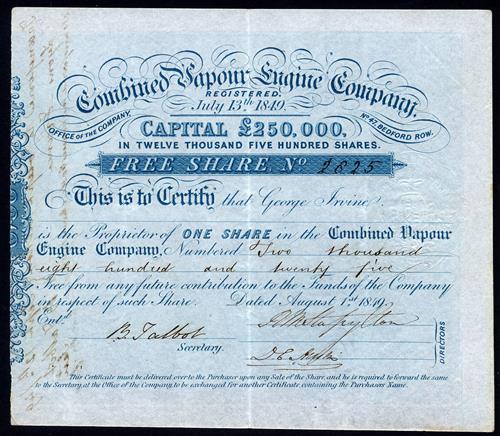 Combined Vapour Engine Company.
REGISTERED
July 13th 1849.
OFFICE OF THE COMPANY,
No 47, BEDFORD ROW.
CAPITAL £250,000,
IN TWELVE THOUSAND FIVE HUNDRED SHARES.
FREE SHARE, No 2825
This is to Certify that George Irvine
is the Proprietor of ONE SHARE in the Combined Vapour
Engine Company, Numbered Two thousand
eight hundred and twenty five
Free from any future contribution to the Funds of the Company
in respect of such Share. Dated August 1st 1849.
Entd
B. Talbot
Secretary.
DIRECTORS
This Certificate must be delivered over to the Purchaser upon any Sale of the Share, and he is required to forward the same
to the Secretary, at the Office of the Company, to be exchanged for another Certificate, containing the Purchasers Name.